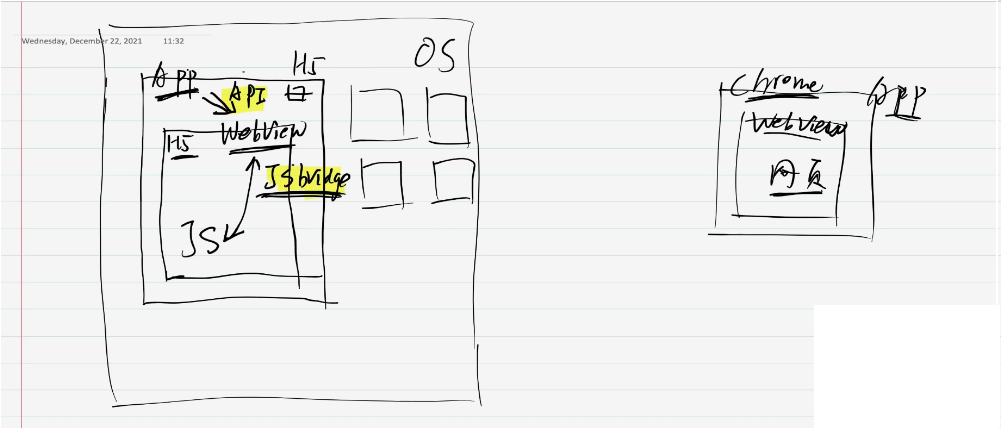 Wednesday, December 22, 2021 11:32
OS
H5
App
API
WebView
H5
JSbridge
JS
Chrome
App
WebView
网页